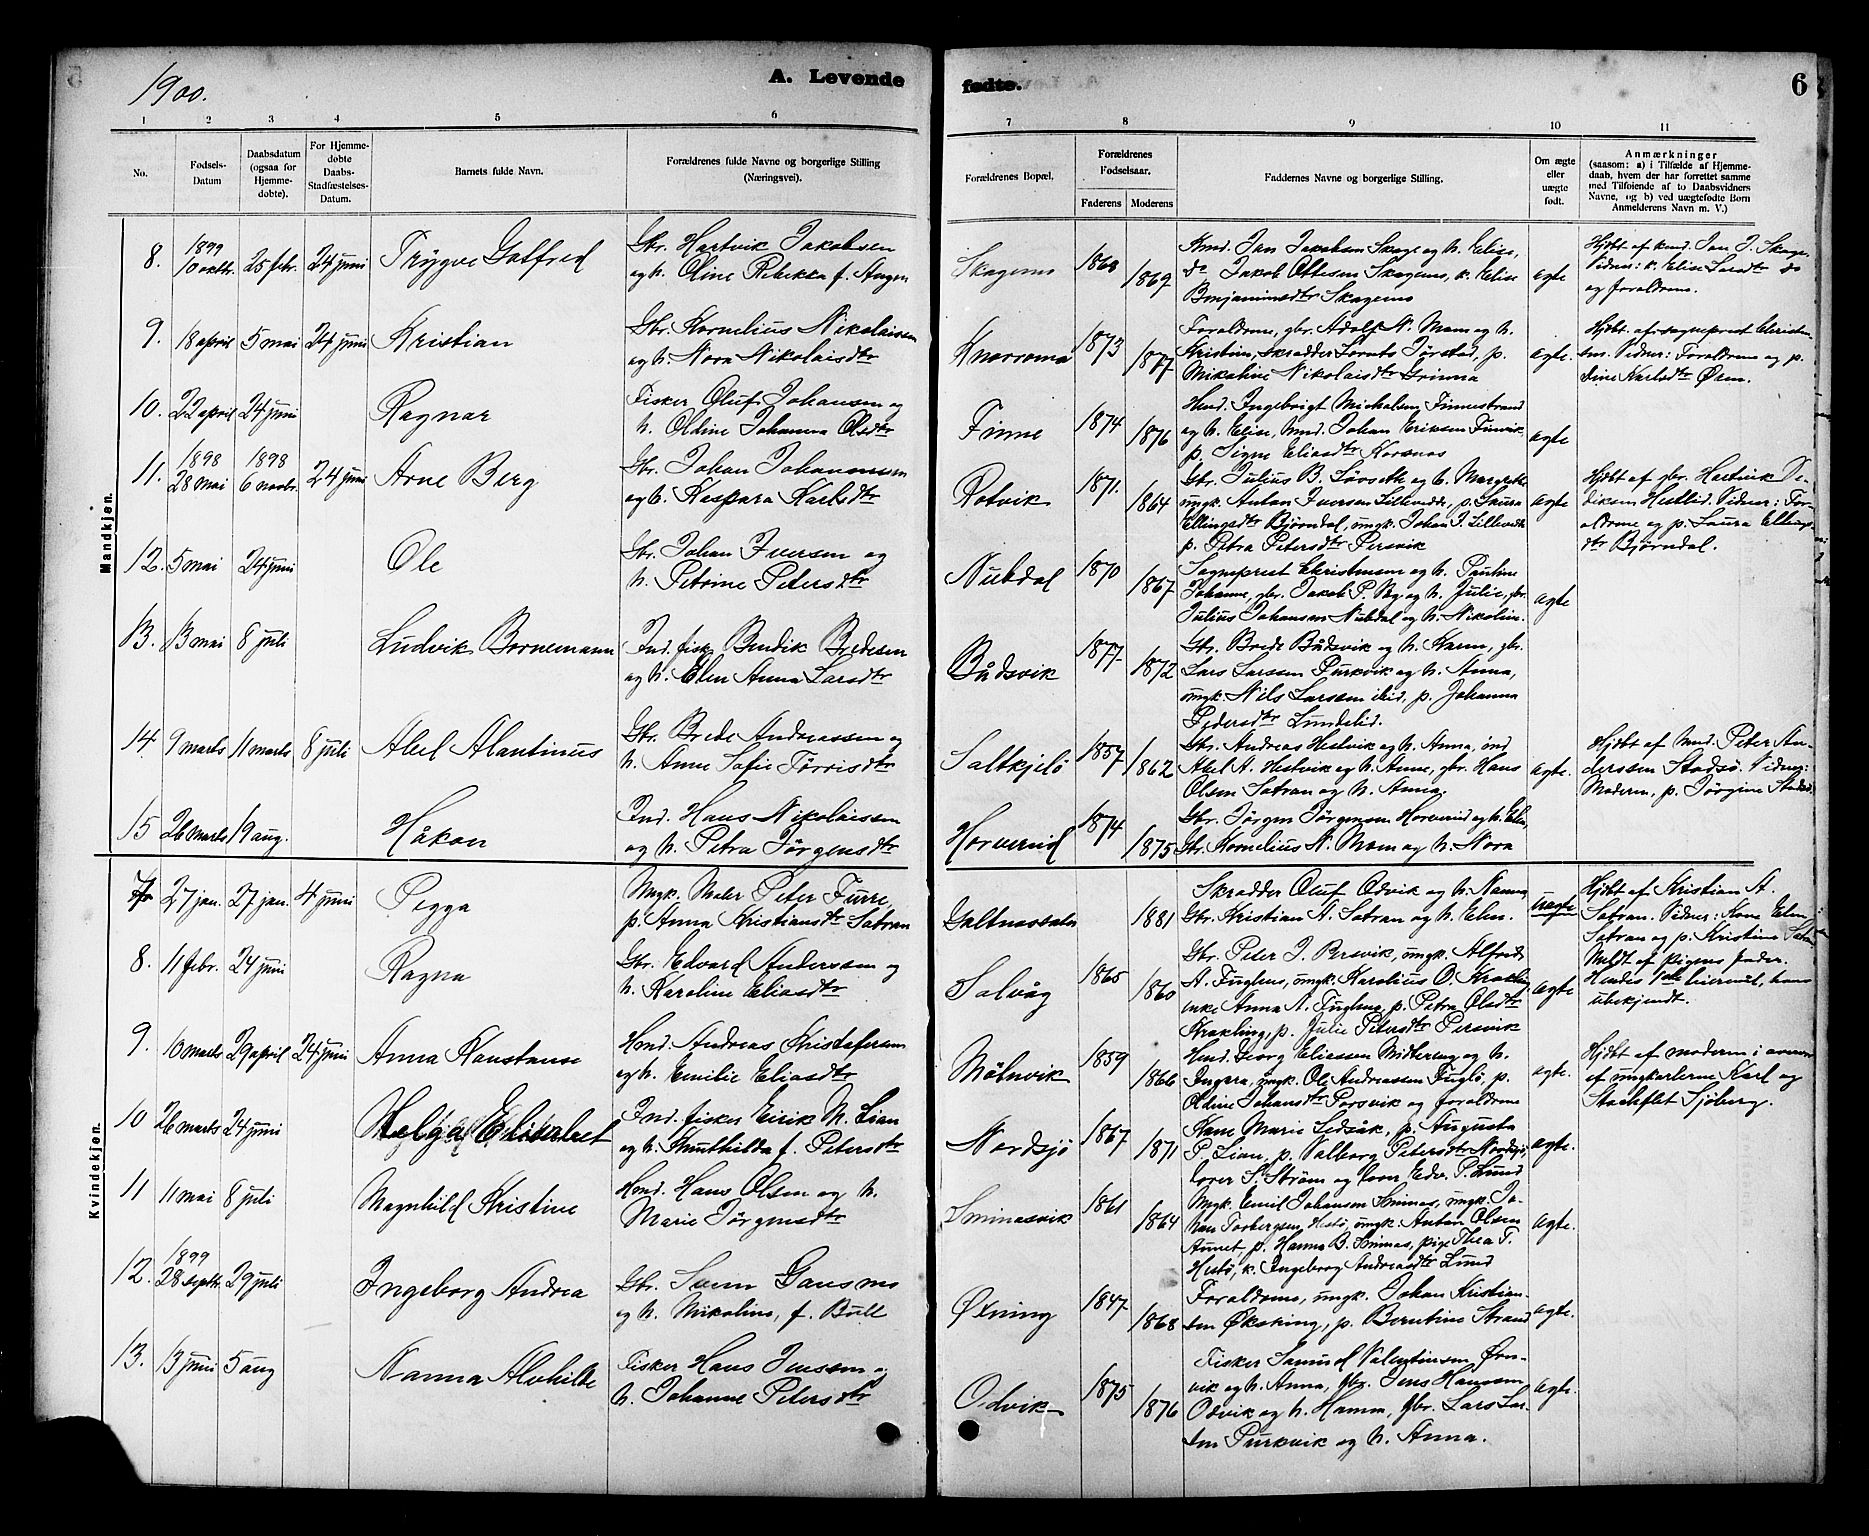 1900.
A. Levende
fødte.
6
1 2 3 4 5 6
7 8 9 10 11
No.
Fødsels-
Datum
Daabsdatum
(ogsaa for
Hjemme-
døbte).
For Hjemme-
døbte
Daabs-
Stadfæstelses-
Datum.
Barnets fulde Navn.
Forældrenes fulde Navne og borgerlige Stilling
(Næringsvei).
Forældrenes Bopæl.
Forældrenes
Fødselsaar.
Faderens Moderens
Faddernes Navne og borgerlige Stilling.
Om ægte
eller
uægte
født.
Anmærkninger
(saasom: a) i Tilfælde af Hjemme-
daab, hvem der har forrettet samme
med Tilføiende af to Daabsvidners
Navne, og b) ved uægtefødte Born
Anmelderens Navn m. V.)
Mandkjøn.
8. 1899 10 oktbr. 25 febr. 24 juni Trygve Galfred
Gbr. Hartvik Jakobsen
og h. Oline Rebekka f. Angen
Skagenes 1869 ægte
Kmd. Jan Jakobsen Skage og h. Elise,
do Jakob Ottesen Skagenes, k. Elise
Benjaminsdtr Skagenes
Vidner: k. Elise Larsdtr do
og forældrene.
9. 18 april 5 mai 24 juni Kristian
Gbr. Kornelius Nikolaisen
og h. Nora Nikolaisdtr
1873 1877 ægte.
Forældrene, gbr. Adolf N. Moen og h.
Kristine, skrædder Jørstad, p.
Mikoline Nikolaisdtr Grinna
Hjdbt. af sogneprest Christen-
sen. Vidner: Forældrene og p.
10. 22 april 24 juni Ragnar
Fisker Oluf Johansen og
h. Oldine Johanna Olsdtr
Finne 1874 1876 ægte
Hmd. Ingebrigt Michalsen Finnestrand
og h. Elise, hmd. Johan Eriksen Finvik,
p. Signe Eliasdtr Korsnes
11. 1898 28 mai 1898 6 novbr. 24 juni Arne Berg
Gbr. Johan Johannesen
og h. Kaspara Karlsdtr
Rotvik 1871. 1864 ægte
Gbr. Julius B. Løvseth og h. Margrethe
ungk. Anton Iversen p. Laura
Ellingsdtr Bjørndal, ungk. Johan J.
p. Petra Petersdtr Persvik
Hjdbt af gbr. Hartvik
Vidner: For-
ældrene og p. Laura Ellings-
dtr Bjørndal.
12. 5 mai 24 juni Ole
Gbr. Johan Iversen og
h. Petrine Petersdtr
Nubdal 1870 1867 ægte
Sogneprest Christensen og h. Pauline
Johanne, gbr. Jakob P. By og h. Julie, gbr.
Julius Johansen Nubdal og h. Nikolin.
13. 13 mai 8 juli Ludvik Bornemann
Ind. fisk. Bendik Bredesen
og h. Elen Anna Larsdtr
Bådsvik 1877 1872 ægte
Gbr. Brede Bådsvik og h. Karen, gbr.
Lars Larssen Purkvik og h. Anna,
ungk. Nils Larssen ibid, p. Johanna
Pedersdtr Lundelid.
14. 9 marts 11 marts 8 juli Abel Alantinus
Gbr. Brede Andreassen og
h. Anne Sofie Tørrisdtr
Saltkjelø 1857 1862 ægte.
Gbr. Andreas Hestvik og h. Anna, ind
Abel A. Hestvik og h. Anne, gbr. Hans
Olsen Sætran og h. Anna.
Hjdbt af hmd. Peter An-
derssen Stadsø. Vidner:
Moderen, p. Jørgine
15 26 marts 19 aug. Håkon
Ind. Hans Nikolaisen
og h. Petra Jørgensdtr
Horverid 1874 1875
Gbr. Jørgen Jørgensen Horverid og h. Elen,
Gbr. Kornelius N. Moen og h. Nora
Kvindekjøn.
7 27 jan. 27 jan. 4 juni Pegga
Ungk. Maler Peter Furre,
p. Anna Kristiansdtr Sætran
1881 uægte
Skrædder Oluf Odvik og h. Nanna,
Gbr. Kristian A. Sætran og h. Elen.
Hjdbt af Kristian A.
Sætran. Vidner: Kone Elen
Sætran og p. Kristine
Meldt af pigens fader.
Hendes 1ste leiermål, hans
ubekjendt.
8. 11 febr. 24 juni Ragna
Gbr. Edvard Anderssen og
h. Karoline Eliasdtr
Salvåg 1865 1860 ægte
Gbr. Peter J. Persvik, ungk. Alfred
A. Fuglenes, ungk. Karolius O. Krækling,
enke Anna A. p. Petra Olsdtr
Krækling, p. Julie Petersdtr Persvik
9. 10 marts 29 april 24 juni Anna Konstanse
Hmd. Andreas Kristofersen
og h. Emilie Eliasdtr
Målnvik 1859 1866 ægte.
Hmd. Georg Eliassen og h.
Ingera, ungk. Ole Andreassen Fuglø, p.
Oldine Johansdtr Porsvik og forældrene
Hjdbt af moderen i overvær
af ungkarlene Karl og
Sjøberg.
10 26 marts 24 juni Helga Elisabet
Ind. fisker Eirik M. Lian
og h. f. Petersdtr
Nordsjø 1867 1871 ægte.
Kone Marie Ledsåk, p. Augusta
P. Lian, p. Valborg Petersdtr Nordsjø,
lærer S. Strøm og Edv. P. Lund
11 11 mai 8 juli Magnhild Kristine
Hmd. Hans Olsen og h.
Marie Jørgensdtr
Sminesvik 1861 1864 ægte.
Ungk. Emil Johansen Smines, ungk. Jo-
han Torbergsen, Hestø, ungk. Anton Olsen
Aunet, p. Hanna B. Smines, pige Thea T.
Hestø, k. Ingeborg Andreasdtr Lund
12. 1899 28 septbr. 29 juli Ingeborg Andrea
Gbr. Sven Gansmo
og h. Nikoline, f. Bull
Øxning 1847 1868 ægte.
Forældrene, ungk. Johan Kristian-
sen Øksning, p. Berntine Strand
13. 13 juni 5 aug Nanna Alvhilde
Fisker Hans Jenssen og
h. Johanne Petersdtr
Odvik 1875 1876 ægte.
Fisker Samuel Valentinsen Ørn-
vik og h. Anna, gbr. Jens Hanssen
Odvik og h. Hanna, gbr. Lars Lar-
sen Purkvik og h. Anna.